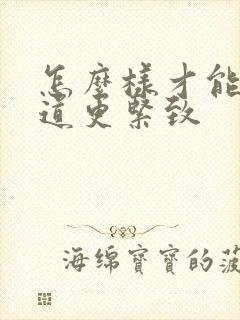 怎麼樣才能
道更緊致
海绵寶寶的菠